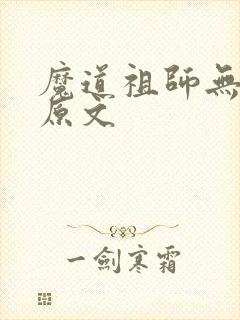 魔道祖師無
原文
一劍寒霜